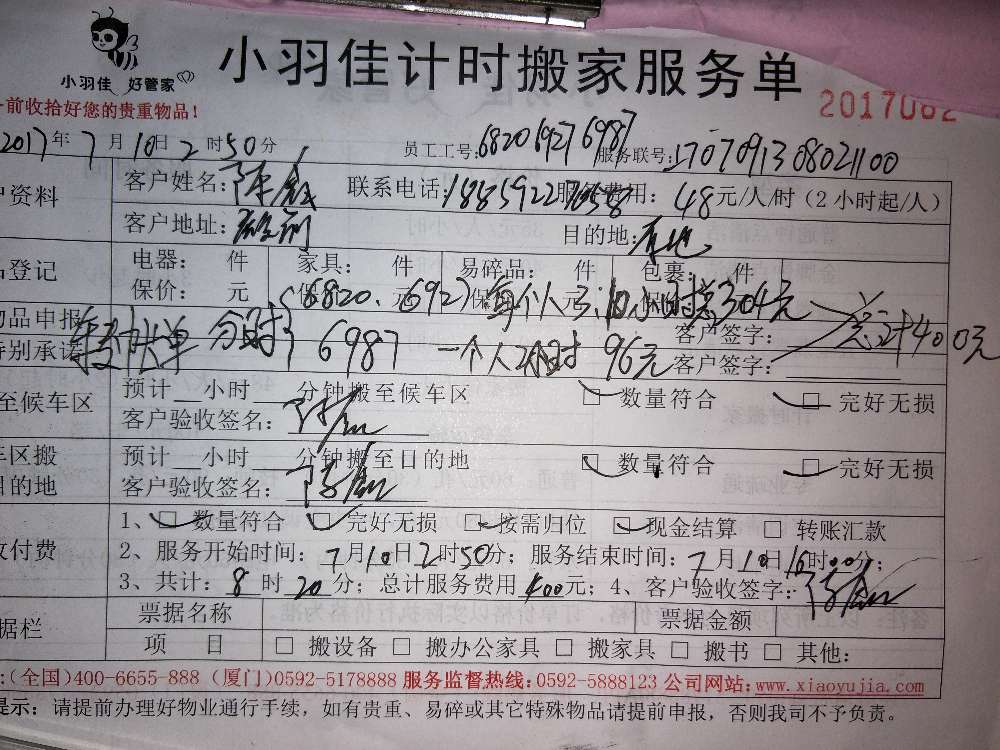 小羽佳 好管家
小羽佳计时搬家服务单
前收拾好您的贵重物品!
2017062
2017年7月10日2时50分 员工工号:6820 6927 6987 服务联号:1707091308021100
户资料 客户姓名:陈 联系电话:18859227058 服务费用:48元/人/时(2小时起/人)
客户地址: 目的地:本地
品登记 电器: 件 家具: 件 易碎品: 件 包裹: 件
保价: 元
6820、6927 每个人3:10小时 总304元
物品申报 客户签字:
分时 总计400元
特别承诺 6987 一个人2小时 96元 客户签字:
至候车区 预计 小时 分钟搬至候车区 数量符合 完好无损
客户验收签名:
车区搬 预计 小时 分钟搬至目的地 数量符合 完好无损
目的地 客户验收签名:
收付费 1、数量符合 完好无损 按需归位 现金结算 转账汇款
2、服务开始时间:7月10日2时50分;服务结束时间:7月10日16时00分;
3、共计:8时20分;总计服务费用400元;4、客户验收签字:
据栏 票据名称 票据金额
项 目 搬设备 搬办公家具 搬家具 搬书 其他:
:(全国)400-6655-888 (厦门)0592-5178888 服务监督热线:0592-5888123 公司网站:www.xiaoyujia.com
提示:请提前办理好物业通行手续,如有贵重、易碎或其它特殊物品请提前申报,否则我司不予负责。